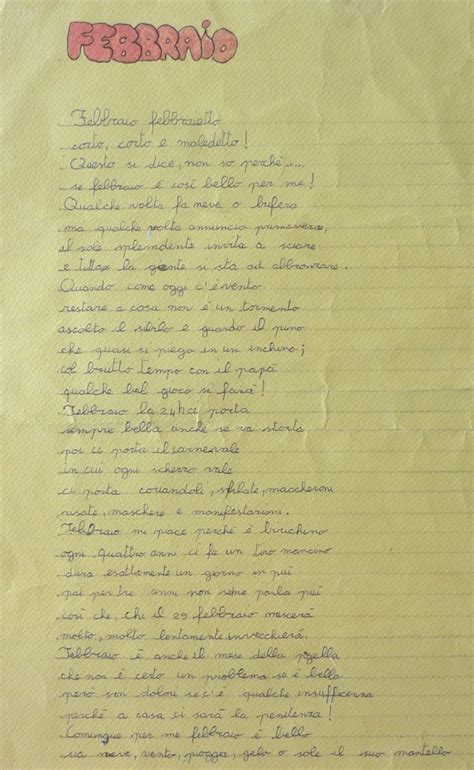 FEBBRAIO
Febbraio febbraietto
corto, corto e maledetto!
Questo si dice, non so perché.....
se febbraio è così bello per me!
Qualche volta fa neve o bufera
ma qualche volta annuncia primavera,
il sole splendente invita a sciare
e tutta la gente si sta ad abbronzare.
Quando come oggi c'è vento
restare a casa non è un tormento
ascolto il sibilo e guardo il pino
che quasi si piega in un inchino;
col brutto tempo con il papà
qualche bel gioco si farà!
Febbraio la 24h ci porta
sempre bella anche se va storta,
poi ci porta il carnevale
in cui ogni scherzo vale
ci porta coriandoli, sfilate, maccheroni
risate, maschere e manifestazioni.
Febbraio mi piace perchè è birichino
ogni quattro anni ci fa un tiro mancino
dura esattamente un giorno in più
poi per tre anni non se ne parla più
così che, chi il 29 febbraio nascerà
molto, molto lentamente invecchierà.
Febbraio è anche il mese della pagella
che non è certo un problema se è bella
però son dolori se c'è qualche insufficenza
perchè a casa ci sarà la penitenza!
Comunque per me febbraio è bello
sia neve, vento, pioggia, gelo o sole il suo mantello